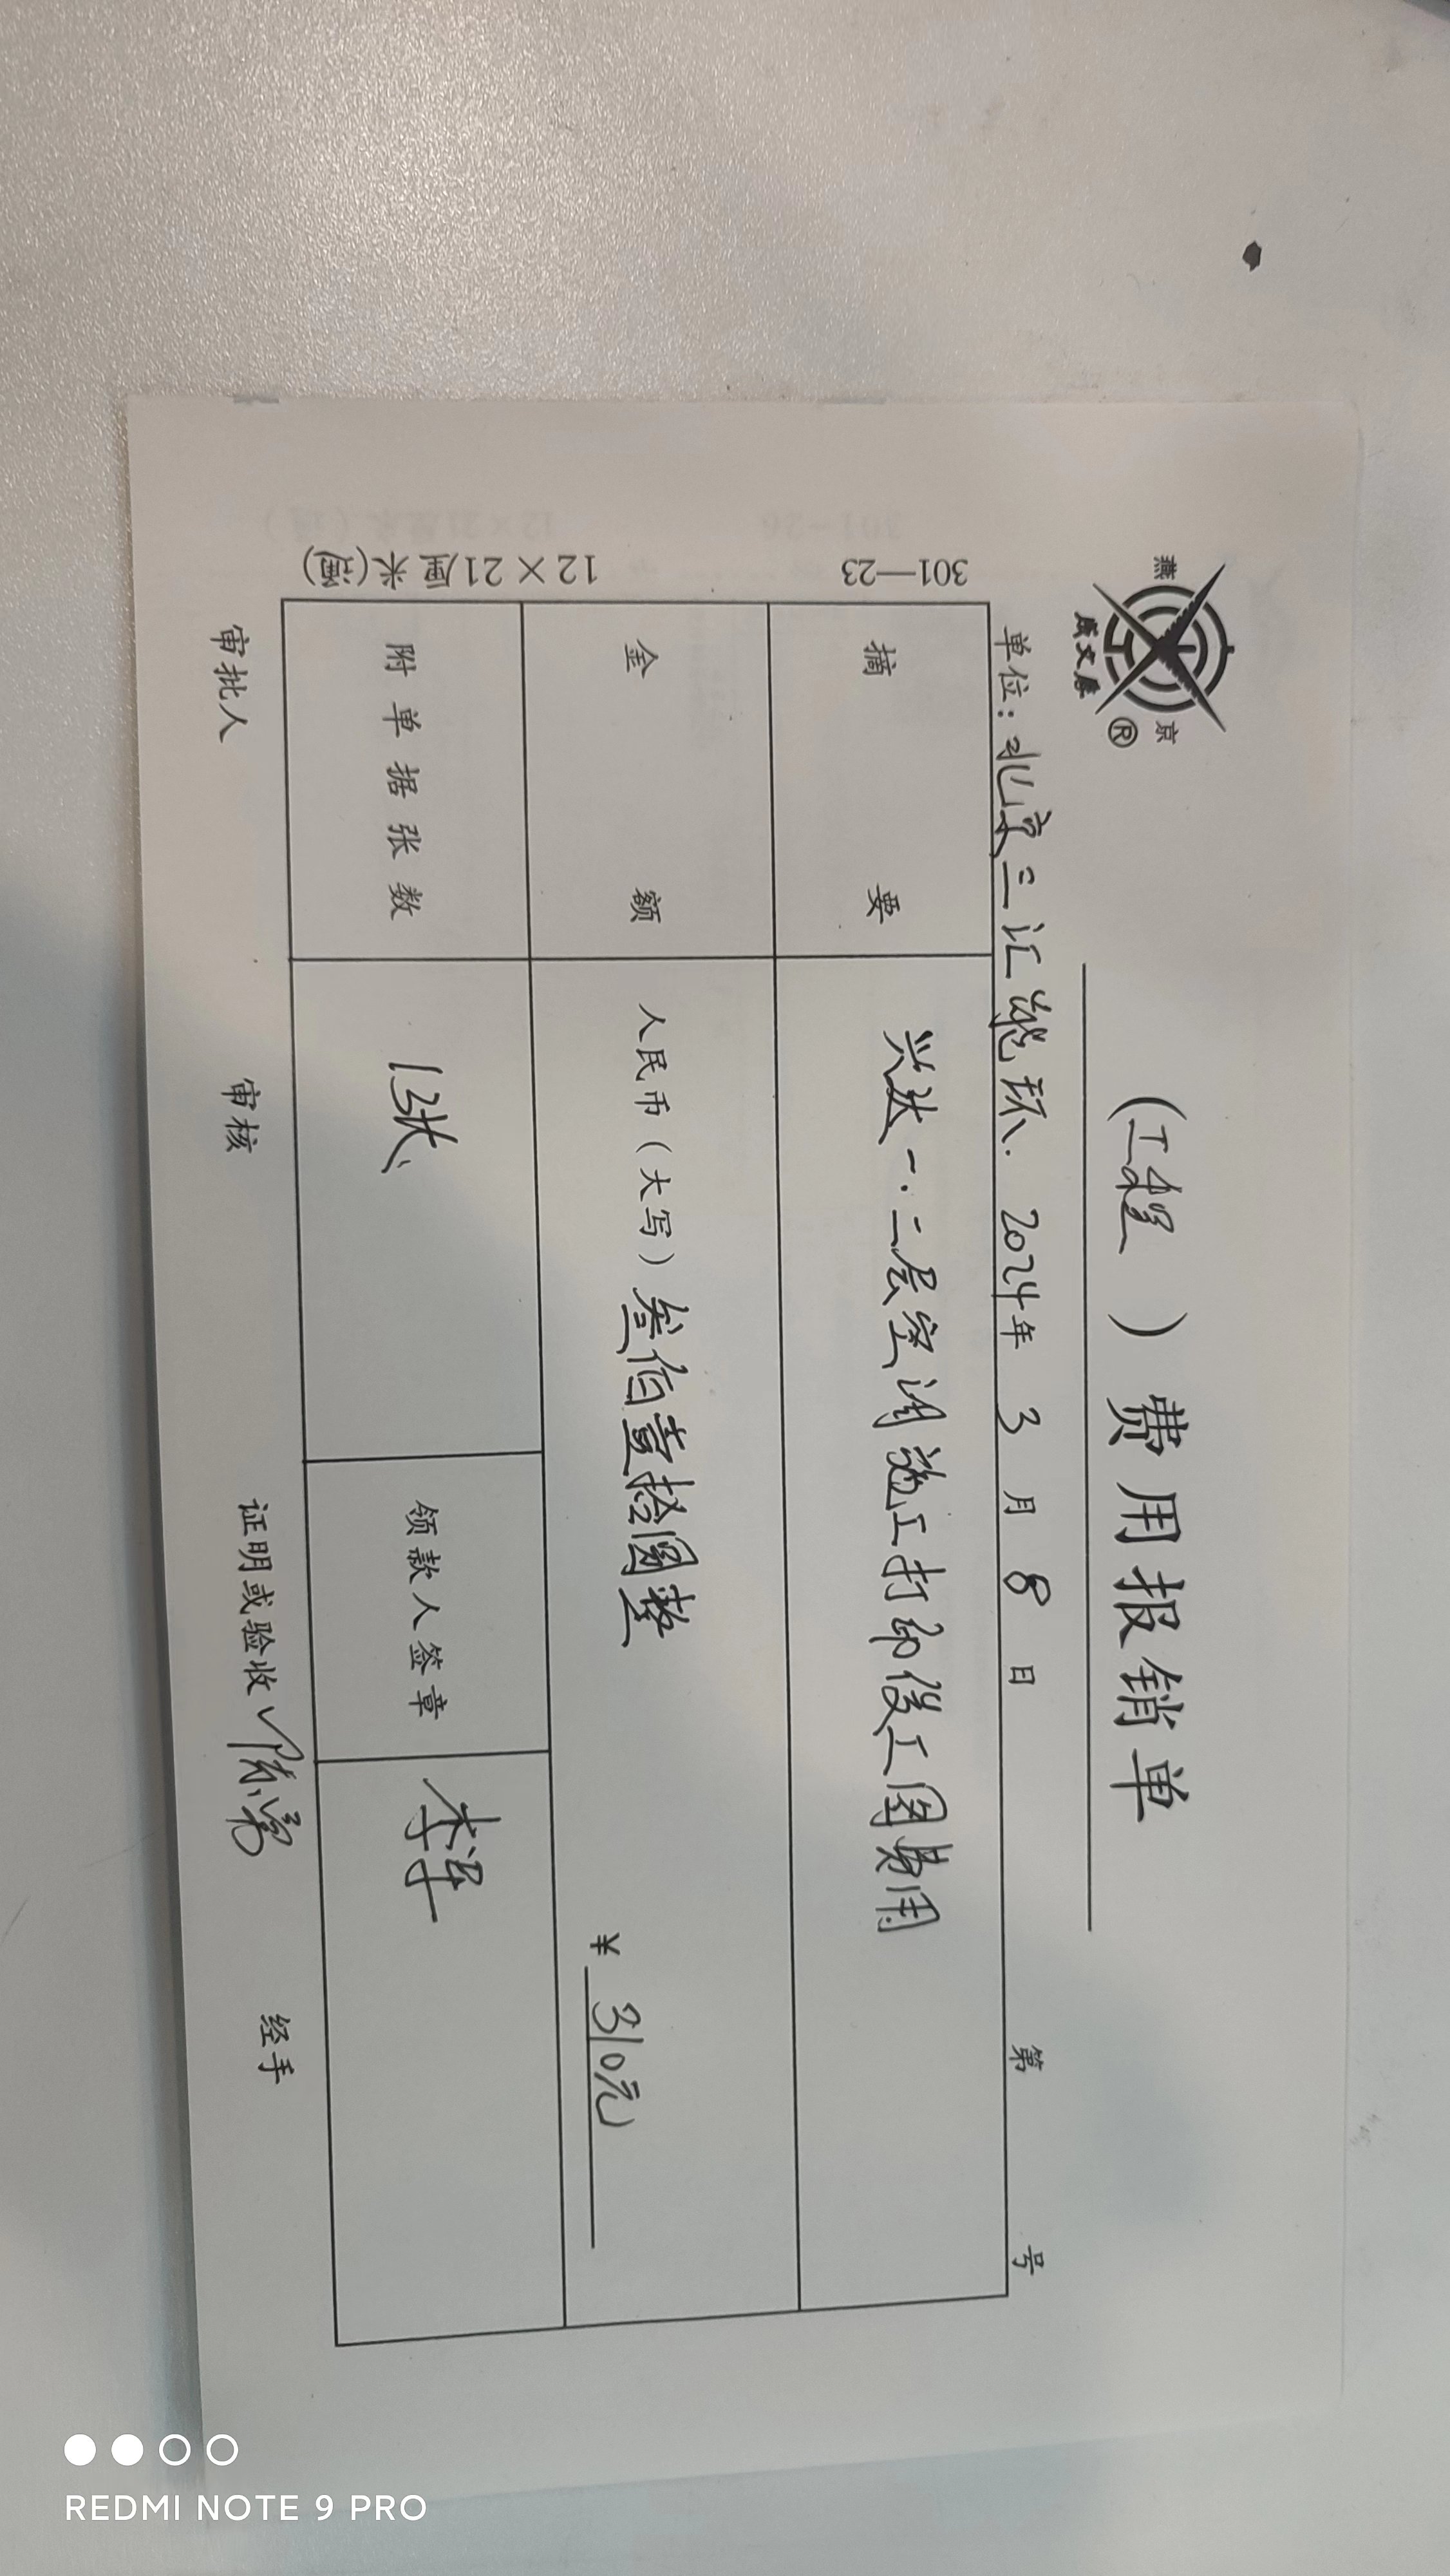 燕京
成文厚
®
（工程）费用报销单
单位：北京三汇能环. 2024年3月8日 第 号
301—23
12×21厘米(通)
摘要 兴达一.二层空调施工打印竣工图费用
金额 人民币（大写）叁佰壹拾圆整
¥ 310元
附单据张数 1张 领款人签章 李军
审批人 审核 证明或验收 陈勇 经手
REDMI NOTE 9 PRO